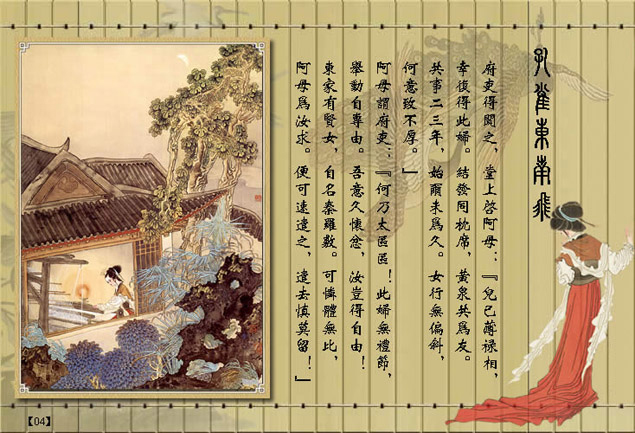 孔雀東南飛
府吏得聞之，堂上啓阿母：『兒已薄祿相，
幸復得此婦。結發同枕席，黃泉共爲友。
共事二三年，始爾未爲久。女行無偏斜，
何意致不厚。』
阿母謂府吏：『何乃太區區！此婦無禮節，
舉動自專由。吾意久懷忿，汝豈得自由！
東家有賢女，自名秦羅敷。可憐體無比，
阿母爲汝求。便可速遣之，遣去慎莫留！』
【04】